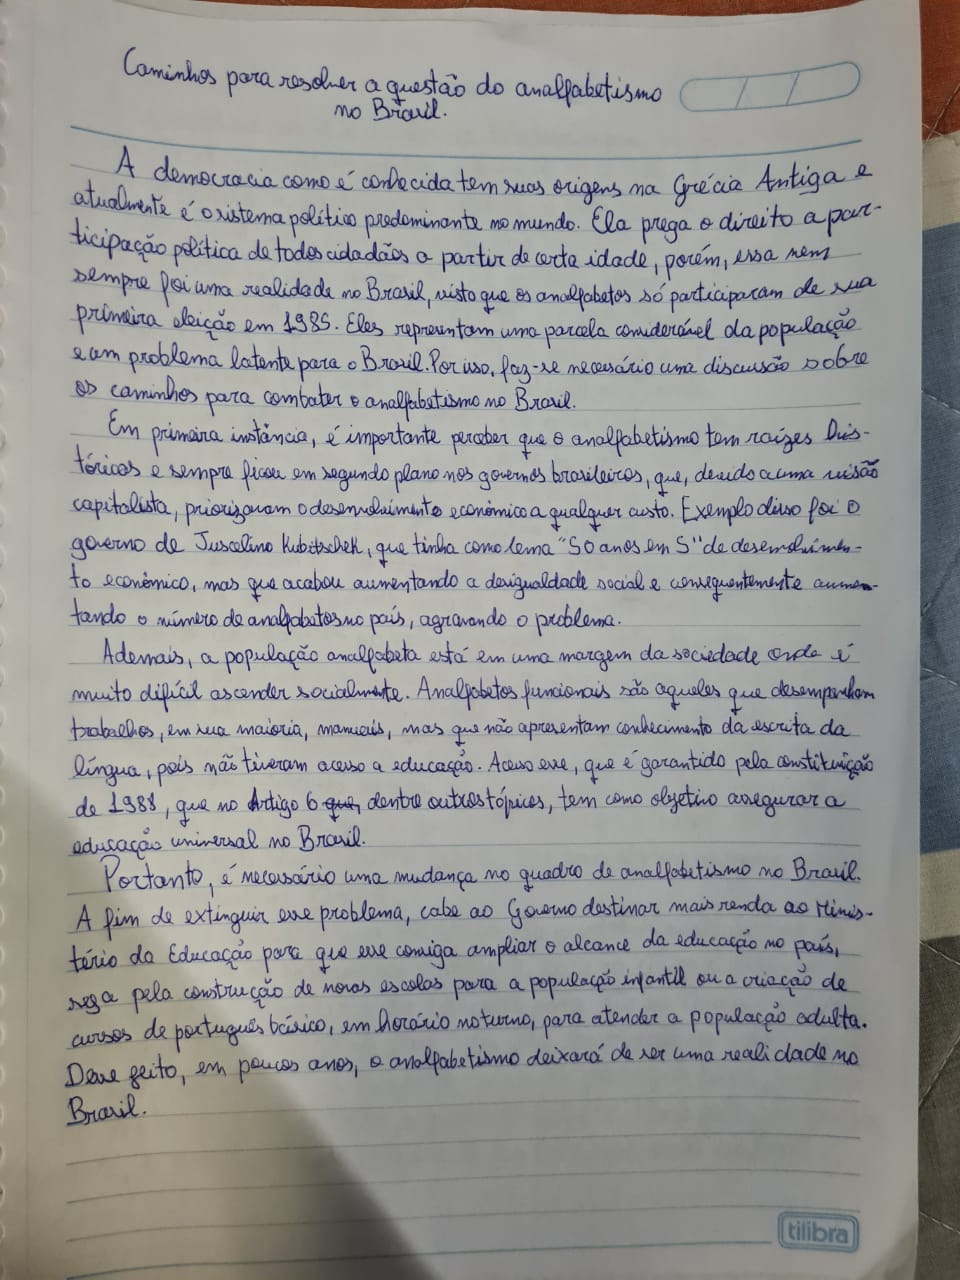 Caminhos para resolver a questão do analfabetismo
no Brasil.
A democracia como é conhecida tem suas origens na Grécia Antiga e
atualmente é o sistema político predominante no mundo. Ela prega o direito a par-
ticipação política de todos cidadãos a partir de certa idade, porém, essa nem
sempre foi uma realidade no Brasil, visto que os analfabetos só participaram de sua
primeira eleição em 1985. Eles representam uma parcela considerável da população
e um problema latente para o Brasil. Por isso, faz-se necessário uma discussão sobre
os caminhos para combater o analfabetismo no Brasil.
Em primeira instância, é importante perceber que o analfabetismo tem raízes his-
tóricas e sempre ficou em segundo plano nos governos brasileiros, que, devido a uma visão
capitalista, priorizaram o desenvolvimento econômico a qualquer custo. Exemplo disso foi o
governo de Juscelino Kubitschek, que tinha como lema "50 anos em 5" de desenvolvimen-
to econômico, mas que acabou aumentando a desigualdade social e consequentemente aumen-
tando o número de analfabetos no país, agravando o problema.
Ademais, a população analfabeta está em uma margem da sociedade onde é
muito difícil ascender socialmente. Analfabetos funcionais são aqueles que desempenham
trabalhos, em sua maioria, manuais, mas que não apresentam conhecimento da escrita da
língua, pois não tiveram acesso a educação. Acesso esse, que é garantido pela constituição
de 1988, que no Artigo 6 que, dentre outros tópicos, tem como objetivo assegurar a
educação universal no Brasil.
Portanto, é necessário uma mudança no quadro de analfabetismo no Brasil.
A fim de extinguir esse problema, cabe ao Governo destinar mais renda ao Minis-
tério da Educação para que esse consiga ampliar o alcance da educação no país,
seja pela construção de novas escolas para a população infantil ou a criação de
cursos de português básico, em horário noturno, para atender a população adulta.
Desse jeito, em poucos anos, o analfabetismo deixará de ser uma realidade no
Brasil.
tilibra